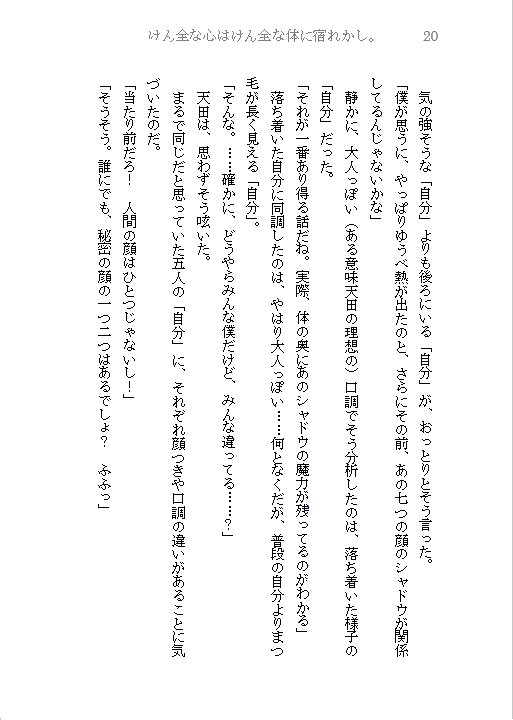 けん全な心はけん全な体に宿れかし。 20
気の強そうな「自分」よりも後ろにいる「自分」が、おっとりとそう言った。
「僕が思うに、やっぱりゆうべ熱が出たのと、さらにその前、あの七つの顔のシャドウが関係
してるんじゃないかな」
静かに、大人っぽい（ある意味天田の理想の）口調でそう分析したのは、落ち着いた様子の
「自分」だった。
「それが一番あり得る話だね。実際、体の奥にあのシャドウの魔力が残ってるのがわかる」
落ち着いた自分に同調したのは、やはり大人っぽい……何となくだが、普段の自分よりまつ
毛が長く見える「自分」。
「そんな。……確かに、どうやらみんな僕だけど、みんな違ってる……？」
天田は、思わずそう呟いた。
まるで同じだと思っていた五人の「自分」に、それぞれ顔つきや口調の違いがあることに気
づいたのだ。
「当たり前だろ！　人間の顔はひとつじゃないし！」
「そうそう。誰にでも、秘密の顔の一つ二つはあるでしょ？　ふふっ」